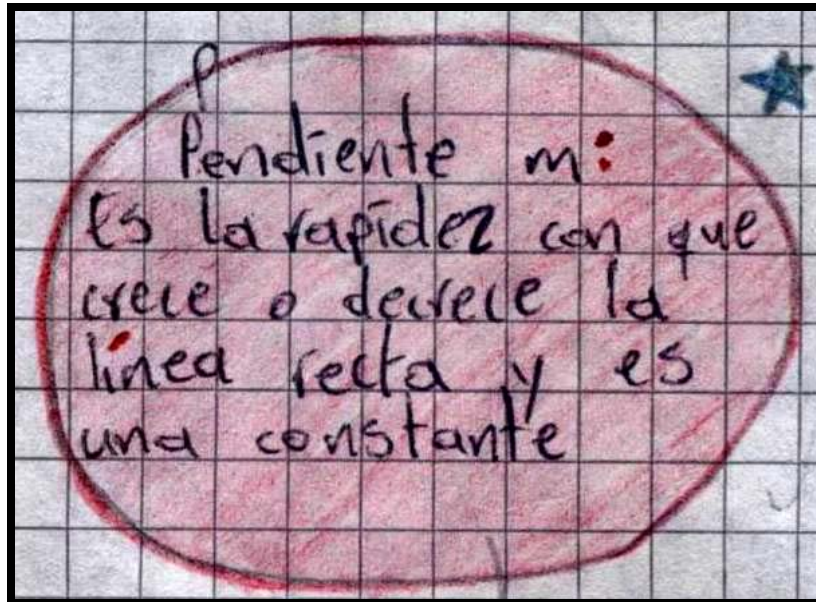 Pendiente m:
Es la rapidez con que
crece o decrece la
línea recta y es
una constante